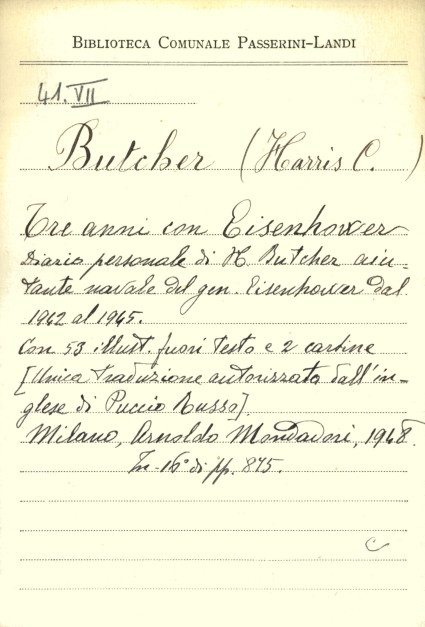 BIBLIOTECA COMUNALE PASSERINI-LANDI
41. VII
Butcher (Harris C.)
Tre anni con Eisenhower
Diario personale di H. Butcher aiu-
tante navale del gen. Eisenhower dal
1942 al 1945.
Con 53 illust. fuori testo e 2 cartine
[Unica traduzione autorizzata dall'in-
glese di Puccio Russo].
Milano, Arnoldo Mondadori, 1948.
In-16° di pp. 875.
C